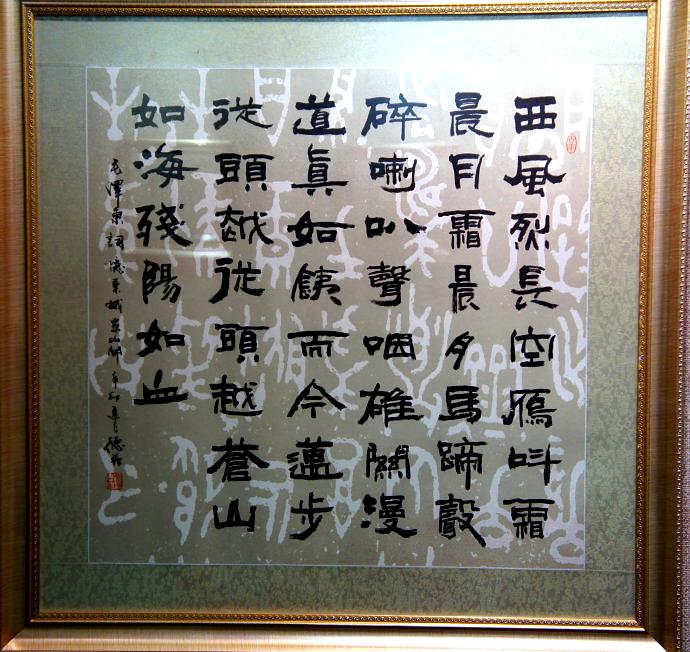 西風烈長空鴈叫霜
晨月霜晨月馬蹄聲
碎喇叭聲咽雄關漫
道眞如銕而今邁步
從頭越從頭越蒼山
如海殘陽如血
毛澤東詞憶秦娥婁山關 辛卯